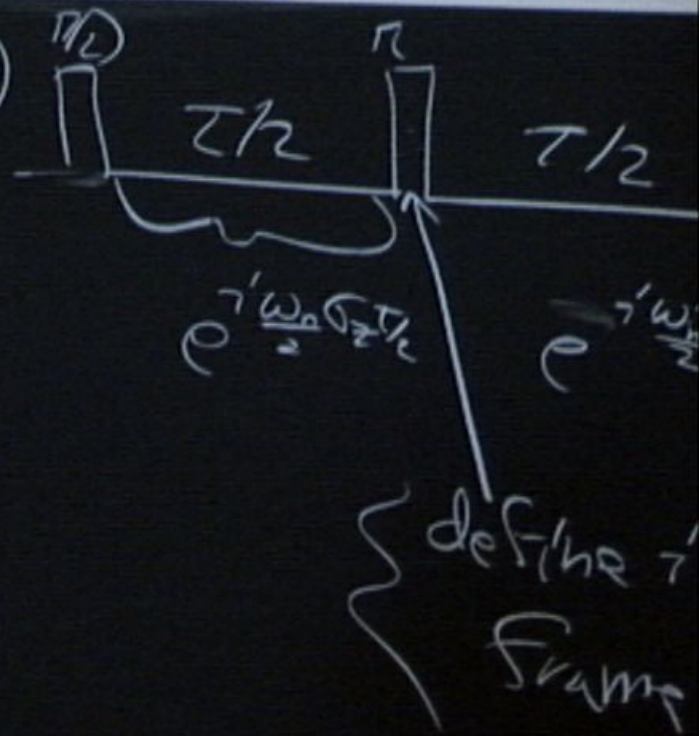 π/2) π
τ/2 τ/2
e^{i ω_n/2 σ_z τ/2} e^{i ω_n/2
define i
frame